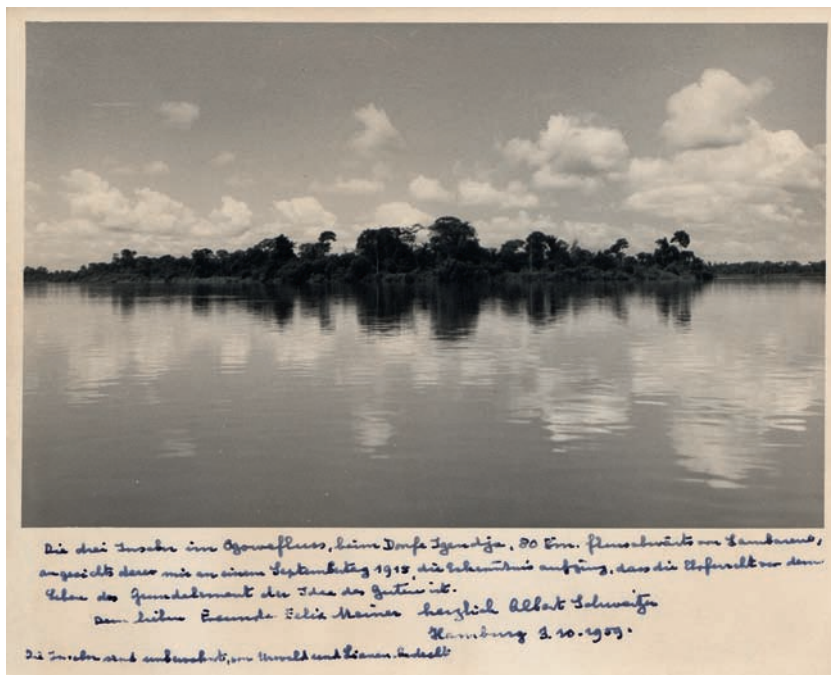 Die drei Inseln im Ogowefluss, beim Dorfe Igendja, 80 Km. flussabwärts von Lambarene,
angesichts derer mir an einem Septembertag 1915 die Erkenntnis aufging, dass die Ehrfurcht vor dem
Leben das Grundelement der Idee des Guten ist.
Dem lieben Freunde Felix Meiner herzlich Albert Schweitzer
Hamburg 3.10.1959.
Die Inseln sind unbewohnt, von Urwald und Lianen bedeckt